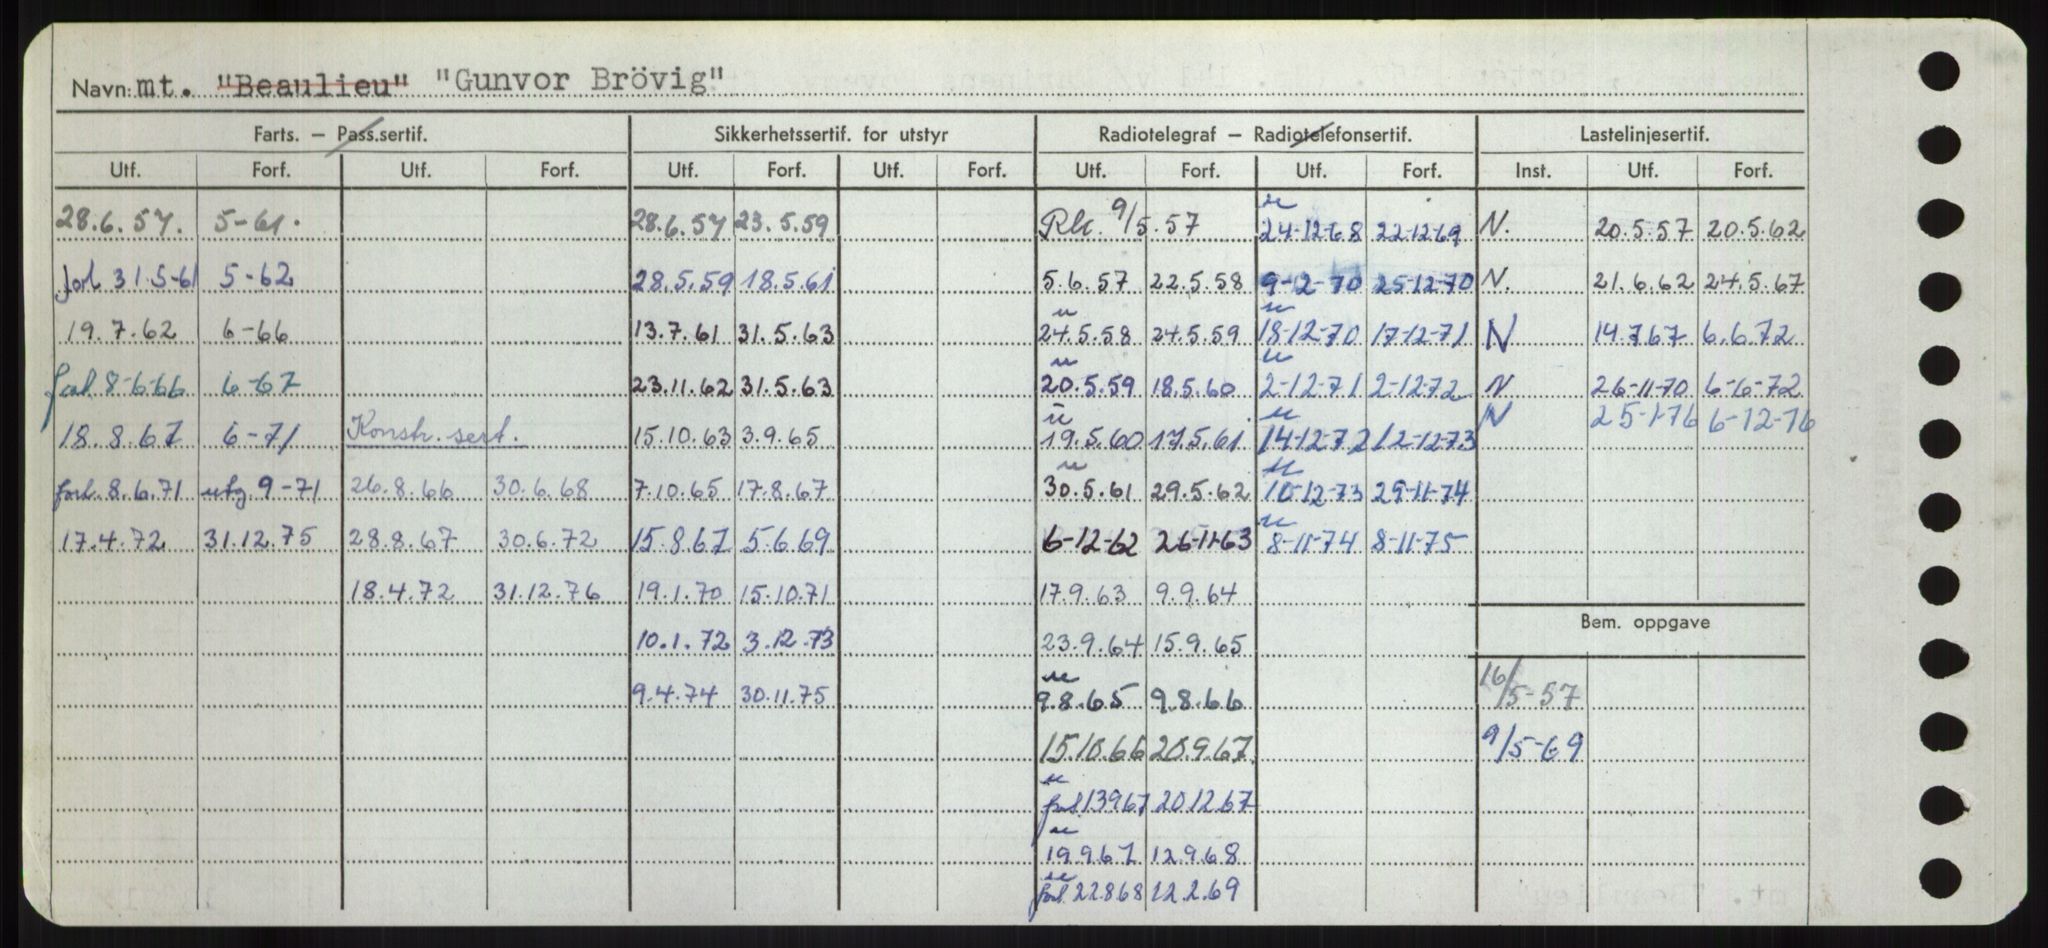 Navn: mt. "Beaulieu" "Gunvor Brövig"
Farts. — Pass.sertif. Sikkerhetssertif. for utstyr Radiotelegraf — Radiotelefonsertif. Lastelinjesertif.
Utf. Forf. Utf. Forf. Utf. Forf. Utf. Forf. Utf. Forf. Utf. Forf. Inst. Utf. Forf.
28.6.57. 5-61. 28.6.57 23.5.59 Rk. 9/5.57 24-12-68 22-12-69 N. 20.5.57 20.5.62
forl 31.5-61 5-62 28.5.59 18.5.61 5.6.57 22.5.58 9-2-70 25-12-70 N. 21.6.62 24.5.67
19.7.62 6-66 13.7.61 31.5.63 24.5.58 24.5.59 18-12-70 17-12-71 N 14.7.67 6.6.72
forl. 8-6-66 6-67 23.11.62 31.5.63 20.5.59 18.5.60 2-12-71 2-12-72 N 26-11-70 6-6-72
N 25-1-76 6-12-76
18.8.67 6-71 Konstr. sert. 15.10.63 3.9.65 19.5.60 17.5.61. 14-12-72 12-12-73
forl. 8.6.71 utg. 9-71 26.8.66 30.6.68 7.10.65 17.8.67 30.5.61 29.5.62 10-12-73 29-11-74
17.4.72 31.12.75 28.8.67 30.6.72 15.8.67 5.6.69 6-12-62 26-11-63 8-11-74 8-11-75
18.4.72 31.12.76 19.1.70 15.10.71 17.9.63 9.9.64
Bem. oppgave
10.1.72 3.12.73 23.9.64 15.9.65
9.4.74 30.11.75 9.8.65 9.8.66 16/5-57
15.10.66 20.9.67. 9/5-69
forl. 13967 20.12.67
19.9.67 12.9.68
forl. 22.8.68 12.2.69